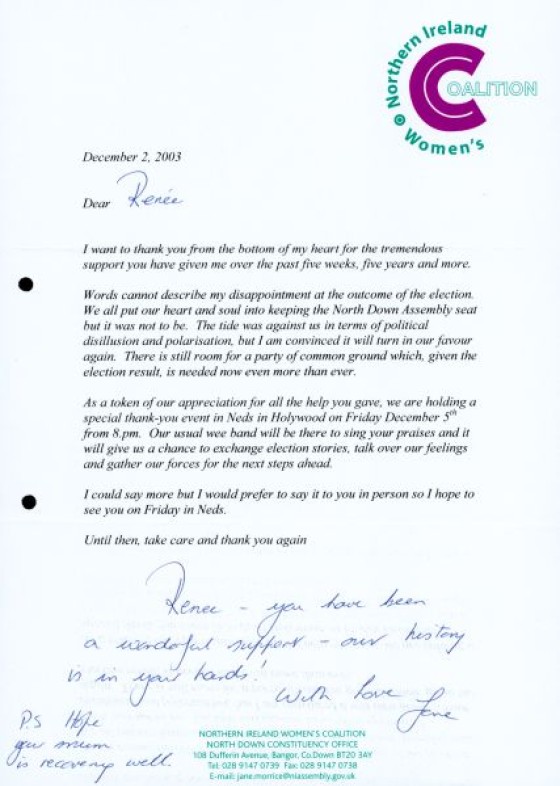 Northern Ireland
COALITION
Women's
December 2, 2003
Dear Renée
I want to thank you from the bottom of my heart for the tremendous
support you have given me over the past five weeks, five years and more.
Words cannot describe my disappointment at the outcome of the election.
We all put our heart and soul into keeping the North Down Assembly seat
but it was not to be. The tide was against us in terms of political
disillusion and polarisation, but I am convinced it will turn in our favour
again. There is still room for a party of common ground which, given the
election result, is needed now even more than ever.
As a token of our appreciation for all the help you gave, we are holding a
special thank-you event in Neds in Holywood on Friday December 5th
from 8.pm. Our usual wee band will be there to sing your praises and it
will give us a chance to exchange election stories, talk over our feelings
and gather our forces for the next steps ahead.
I could say more but I would prefer to say it to you in person so I hope to
see you on Friday in Neds.
Until then, take care and thank you again
Renee - you have been
a wonderful support - our history
is in your hands!
With love Jane
P.S Hope
your mum
is recovering well.
NORTHERN IRELAND WOMEN'S COALITION
NORTH DOWN CONSTITUENCY OFFICE
108 Dufferin Avenue, Bangor, Co.Down BT20 3AY
Tel: 028 9147 0739 Fax: 028 9147 0738
E-mail: jane.morrice@niassembly.gov.uk